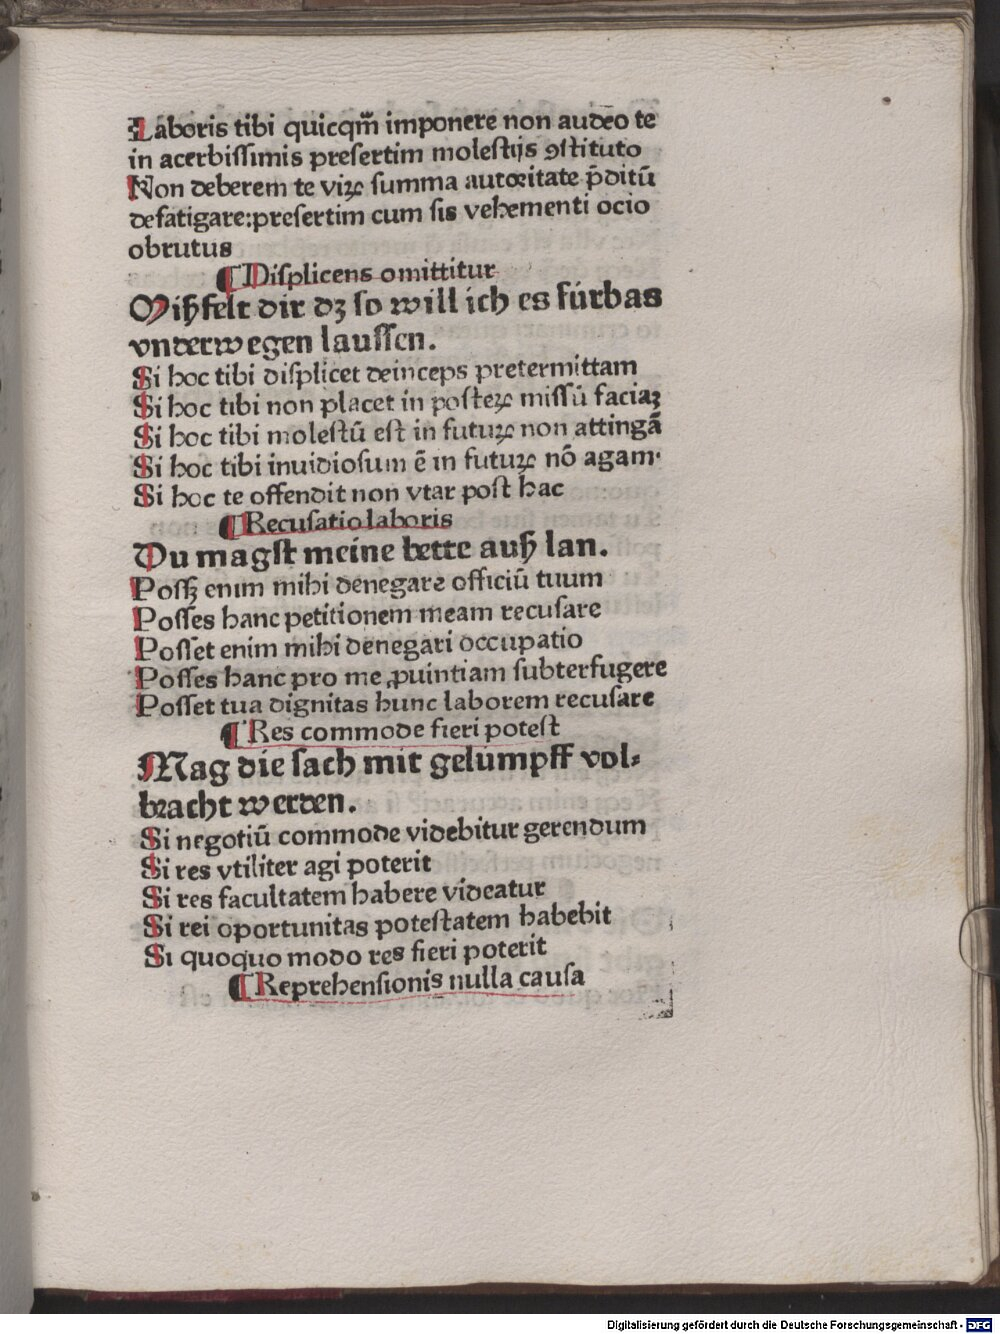 Laboris tibi quicqm̄ imponere non audeo te
in acerbissimis presertim molestijs ꝯstituto
Non deberem te viꝝ summa autoritate p̄ditū
defatigare:presertim cum sis vehementi ocio
obrutus
¶ Displicens omittitur
Miszfelt dir dz so will ich es fúrbas
vnderwegen laussen.
Si hoc tibi displicet deinceps pretermittam
Si hoc tibi non placet in posteꝝ missū faciaꝫ
Si hoc tibi molestū est in futuꝝ non attingā
Si hoc tibi inuidiosum ē in futuꝝ nō agam.
Si hoc te offendit non vtar post hac
¶ Recusatio laboris
Du magst meine bette ausz lan.
Possꝫ enim mihi denegare officiū tuum
Posses hanc petitionem meam recusare
Posset enim mihi denegari occupatio
Posses hanc pro me ꝓuintiam subterfugere
Posset tua dignitas hunc laborem recusare
¶ Res commode fieri potest
Mag die sach mit gelúmpff vol⸗
bracht werden.
Si negotiū commode videbitur gerendum
Si res vtiliter agi poterit
Si res facultatem habere videatur
Si rei oportunitas potestatem habebit
Si quoquo modo res fieri poterit
¶ Reprehensionis nulla causa
Digitalisierung gefördert durch die Deutsche Forschungsgemeinschaft - DFG